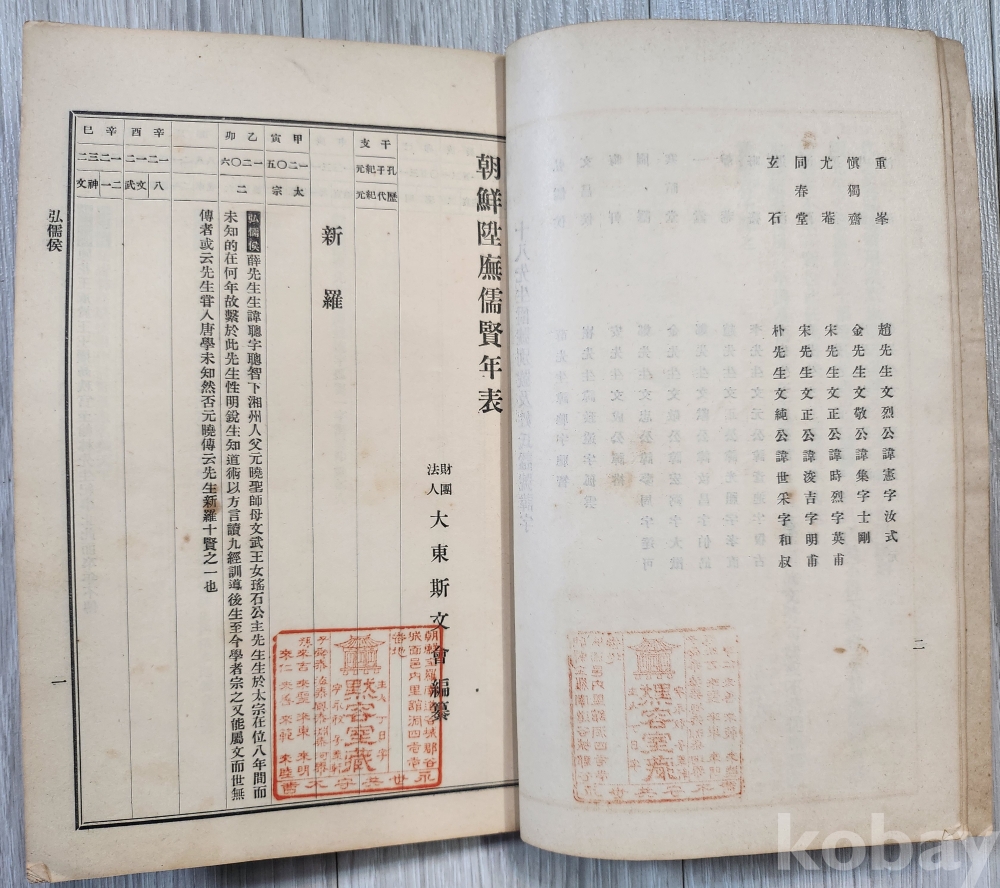 重峯 趙先生文烈公諱憲字汝式
愼獨齋 金先生文敬公諱集字士剛
尤庵 宋先生文正公諱時烈字英甫
同春堂 宋先生文正公諱浚吉字明甫
玄石 朴先生文純公諱世采字和叔
二
朝鮮陞廡儒賢年表
財團法人 大東斯文會編纂
干支
孔子紀元
歷代紀元
新羅
甲寅
一二〇五
太宗
乙卯
一二〇六
二
弘儒侯薛先生生諱聰字聰智下湘州人父元曉聖師母文武王女瑤石公主先生生於太宗在位八年間而
未知的在何年故繫於此先生性明銳生知道術以方言讀九經訓導後生至今學者宗之又能屬文而世無
傳者或云先生甞入唐學未知然否元曉傳云先生新羅十賢之一也
辛酉
一二一二
八
文武
辛巳
一二三二
二一
神文
弘儒侯
一
默容室藏
kobay